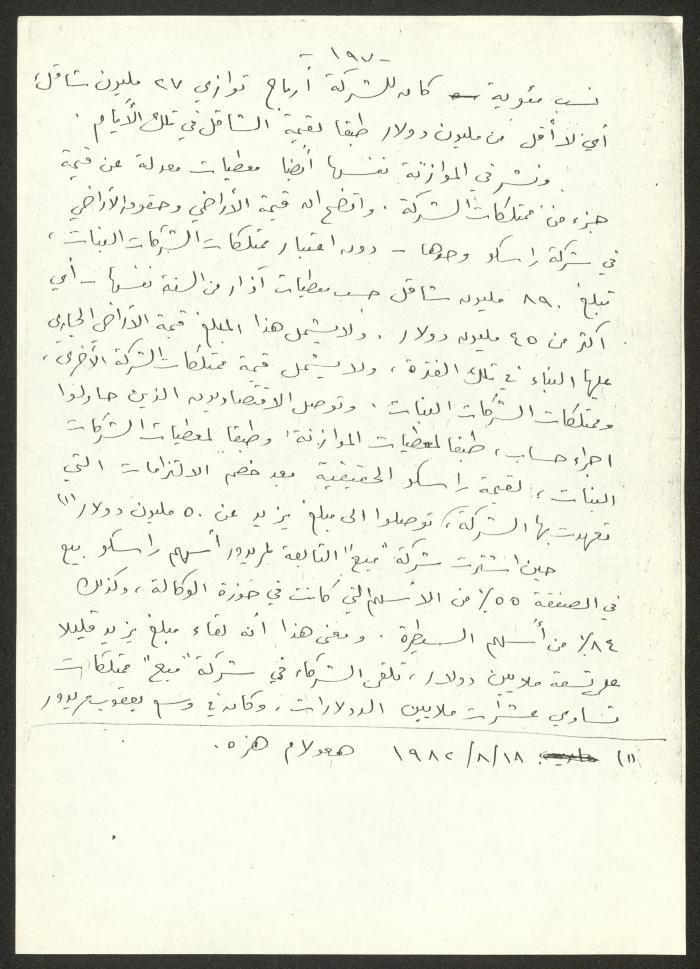 - ١٩٧ -
نسب مئوية كان للشركة أرباح توازي ٢٧ مليون شاقل،
أي لا أقل من مليون دولار طبقا لقيمة الشاقل في تلك الأيام .
ونشر في الموازنة نفسها أيضا معطيات معدلة عن قيمة
جزء من ممتلكات الشركة . واتضح ان قيمة الأراضي وحقوق الأراضي
في شركة راسكو وحدها - دون اعتبار ممتلكات الشركات البنات ،
تبلغ ٨٩٠ مليون شاقل حسب معطيات آذار من السنة نفسها - أي
اكثر من ٤٥ مليون دولار . ولا يشمل هذا المبلغ قيمة الأراضي الجاري
عليها البناء في تلك الفترة ، ولا يشمل قيمة ممتلكات الشركة الأخرى ،
وممتلكات الشركات البنات . وتوصل الاقتصاديون الذين حاولوا
اجراء حساب ، طبقا لمعطيات الموازنة وطبقا لمعطيات الشركات
البنات ، لقيمة راسكو الحقيقية بعد خصم الالتزامات التي
تعهدت بها الشركة ، توصلوا الى مبلغ يزيد عن ٥٠ مليون دولار (١)
حين اشترت شركة "مبع" التابعة لمريدور أسهم راسكو بيع
في الصفقة ٥٥٪ من الأسهم التي كانت في حوزة الوكالة ، وكذلك
٨٤٪ من أسهم السيطرة . ومعنى هذا أنه لقاء مبلغ يزيد قليلا
على تسعة ملايين دولار ، تلقى الشركاء في شركة "مبع" ممتلكات
تساوي عشرات ملايين الدولارات ، وكان في وسع يعقوب مريدور
(١) ١٩٨٢/٨/١٨ هعولام هزه .